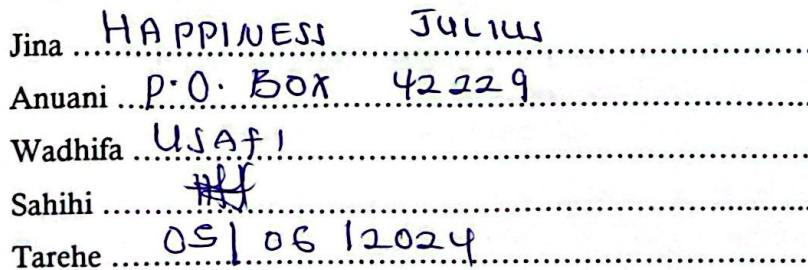 Jina HAPPINESS JULIUS
Anuani P.O. BOX 42229
Wadhifa USAFI
Sahihi
Tarehe 05/06/2024